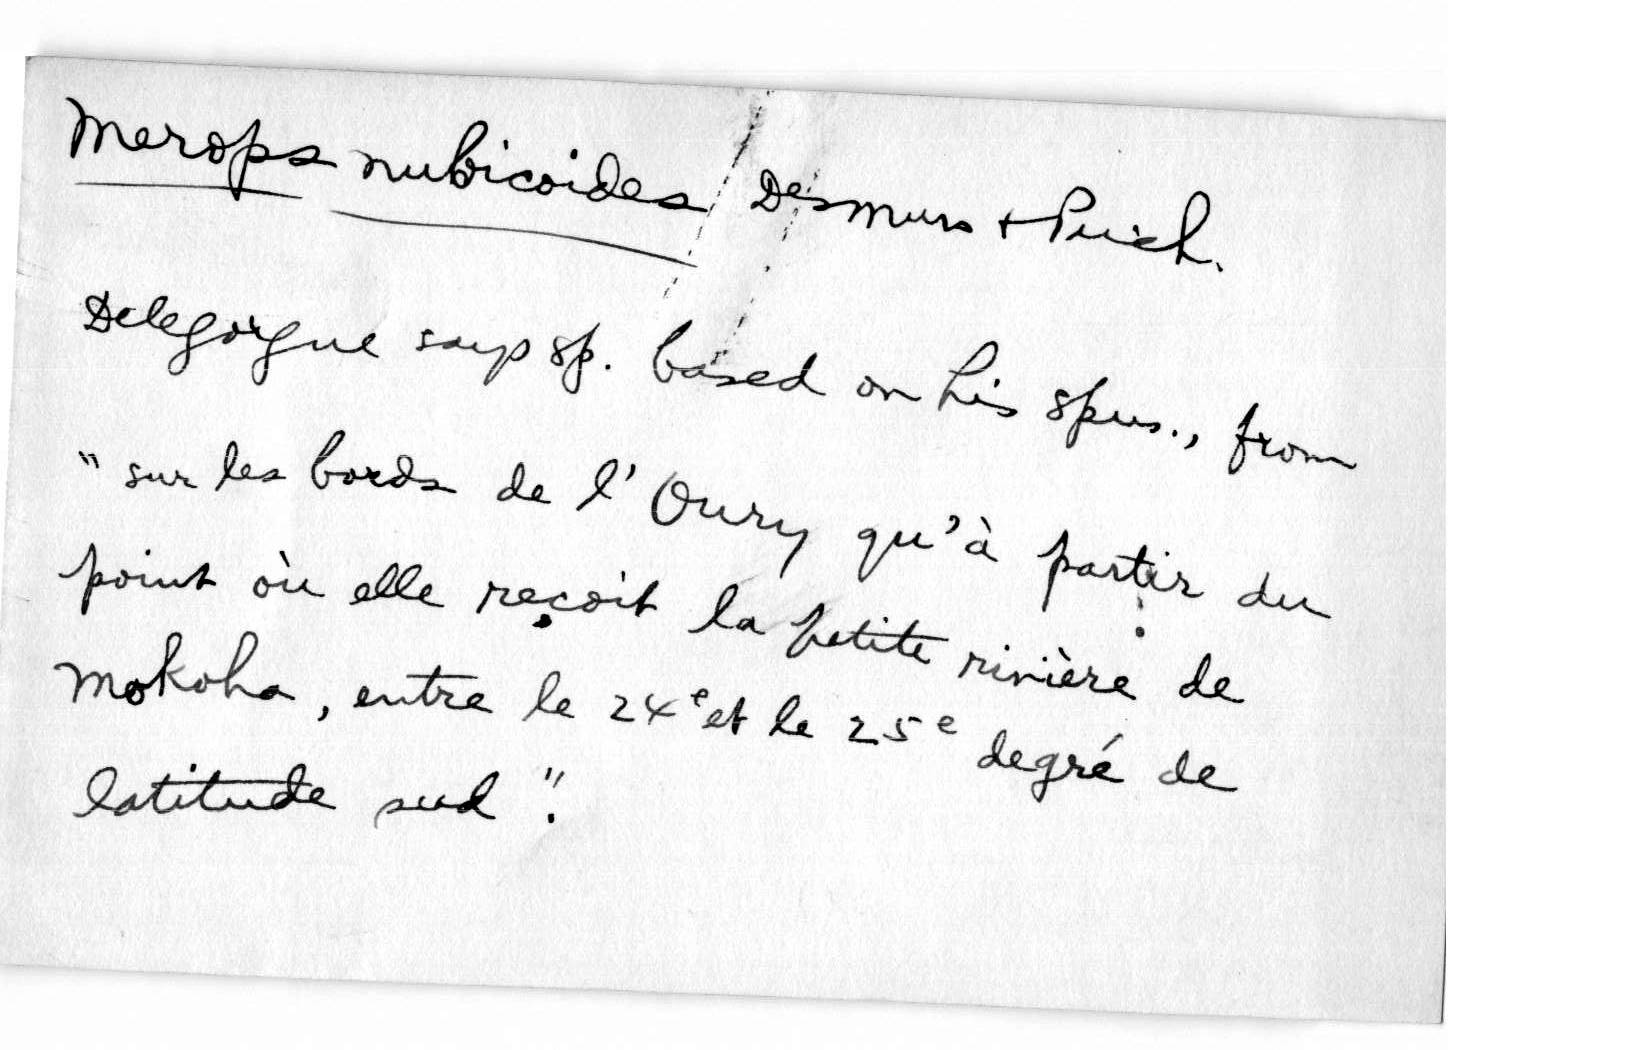 Merops nubicoides Des Murs + Puch.
Delegorgue says sp. based on his spms., from
"sur les bords de l'Oury qu'à partir du
point où elle reçoit la petite rivière de
Mokoha, entre le 24e et le 25e degré de
latitude sud".